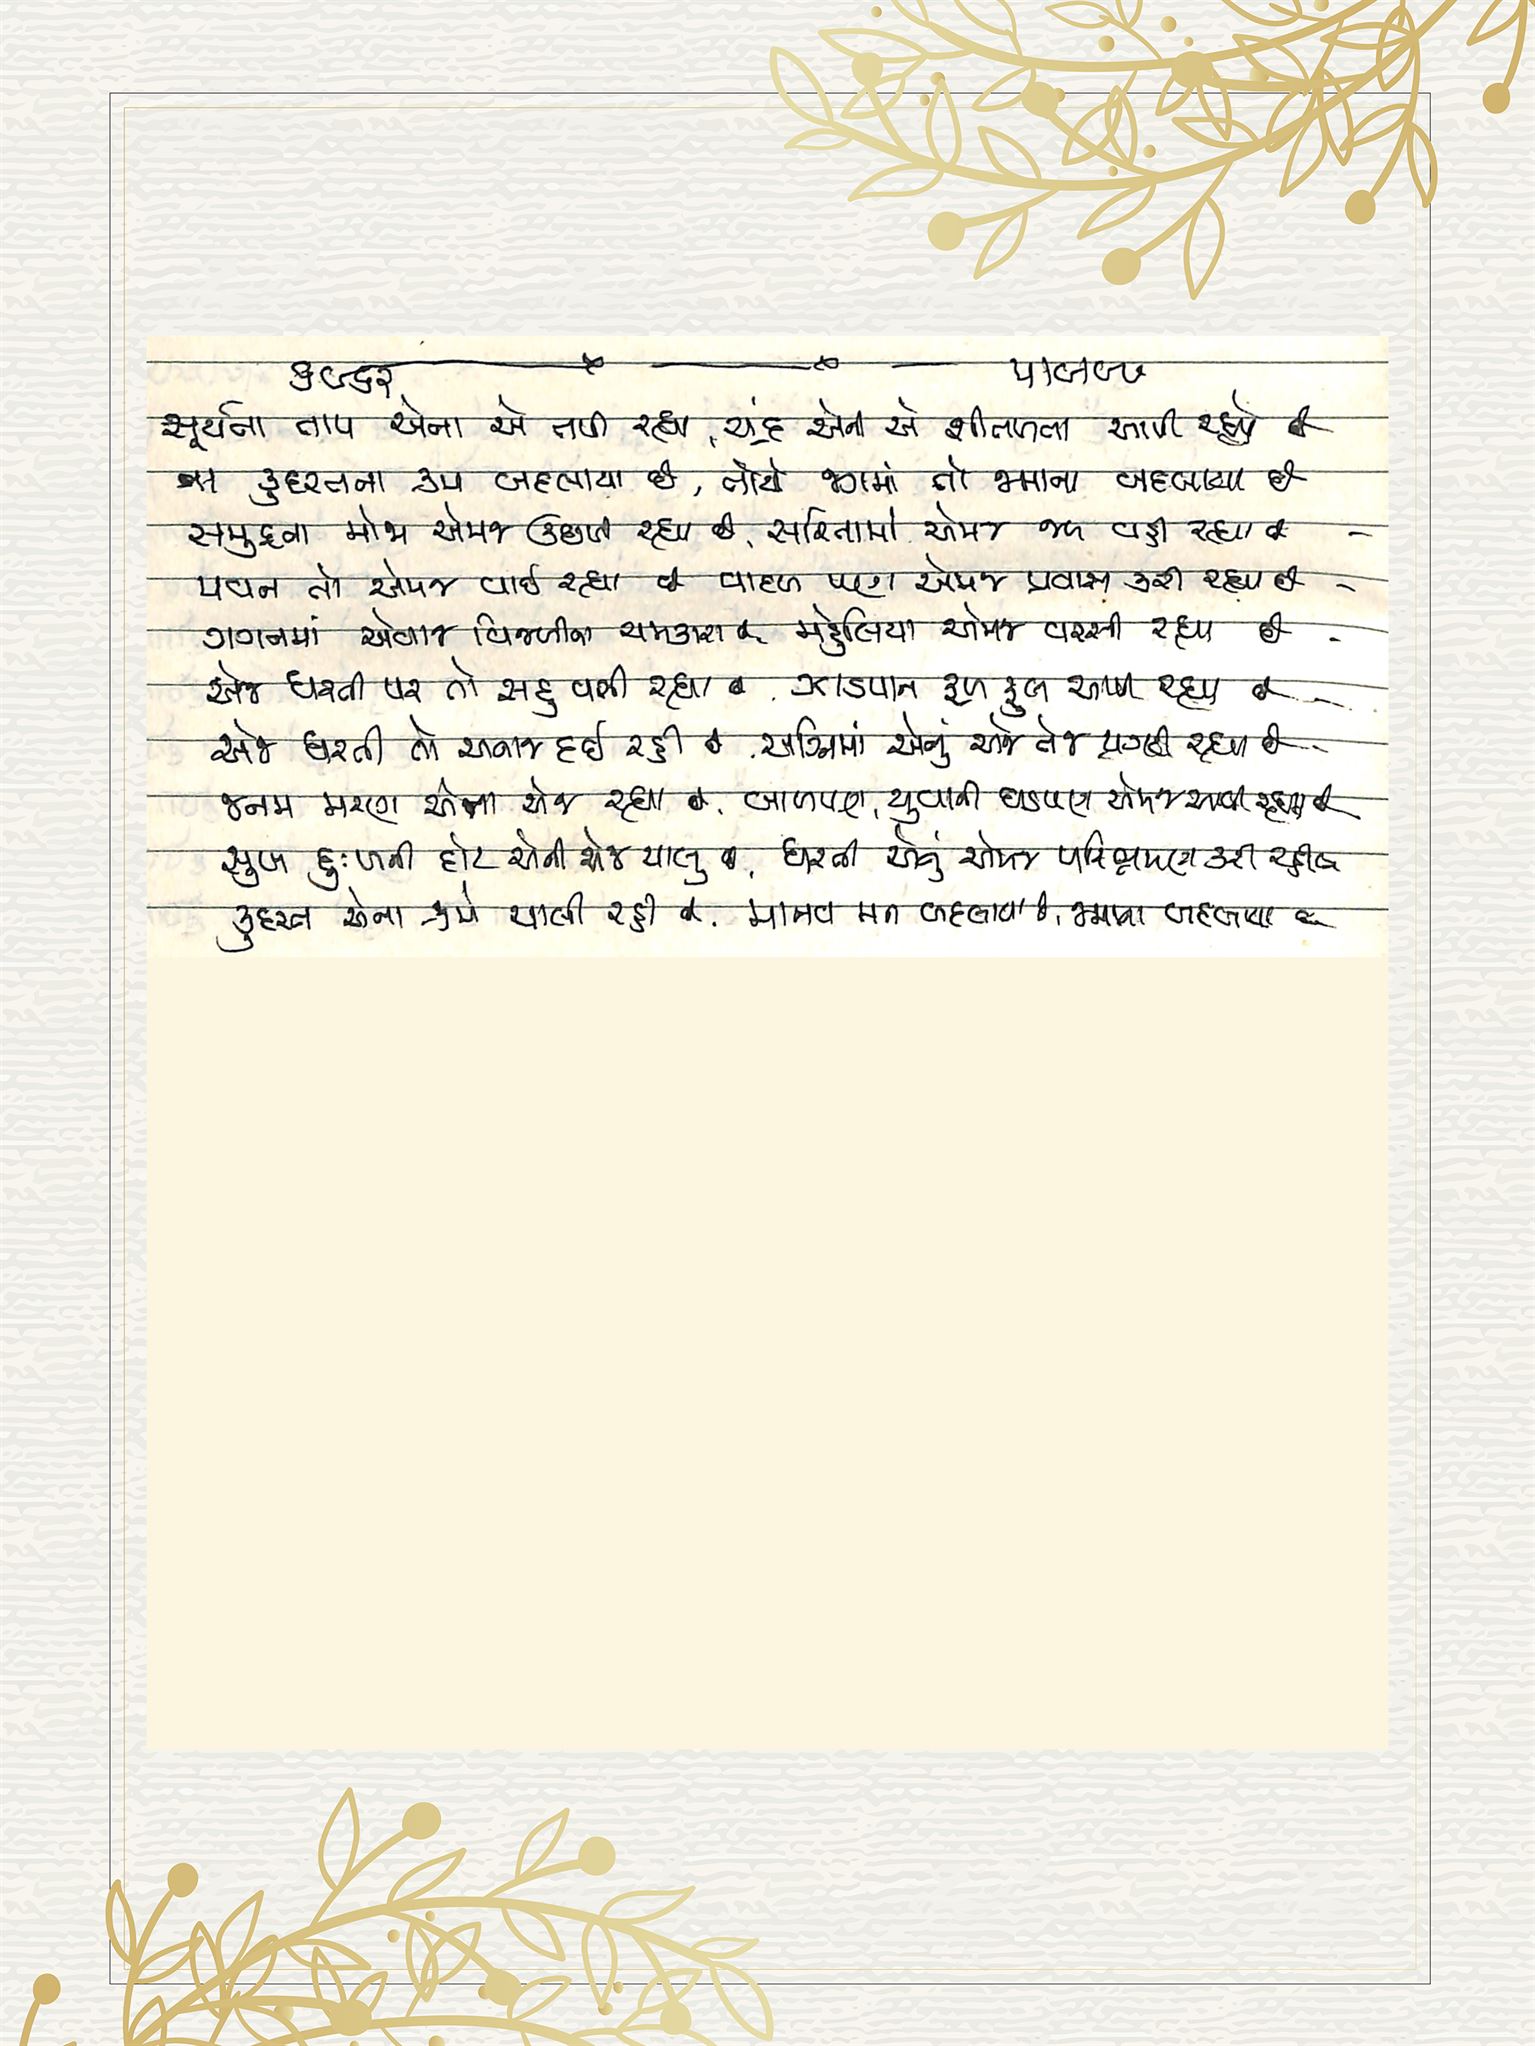 સૂર્યના તાપ એના એ તાપી રહ્યા, ચંદ્ર એની એ શીતળતા આપી રહ્યો છે
ના કુદરતના ક્રમ બદલાયા છે, તોયે જગમાં તો જમાના બદલાયા છે
સમુદ્રના મોજા એમજ ઉછળી રહ્યા છે, સરિતામાં એમજ જળ વહી રહ્યા છે -
પવન તો એમજ વાઈ રહ્યા છે વાદળ પણ એમજ પ્રવાસ કરી રહ્યા છે -
ગગનમાં એવાજ વિજળીના ચમકારા છે, મેહુલિયા એમજ વરસી રહ્યા છે -
એજ ધરતી પર તો સહુ વસી રહ્યા છે. ઝાડપાન ફળ ફુલ આપી રહ્યા છે -
એજ ધરતી તો અનાજ દઈ રહી છે. અગ્નિમાં એનું એજ તેજ પ્રગટી રહ્યા છે -
જનમ મરણ એના એજ રહ્યા છે. બાળપણ, યુવાની ઘડપણ એમજ આવી રહ્યા છે
સુખ દુઃખની હોટ એની એજ ચાલુ છે, ધરતી એનું એમજ પરિભ્રમણ કરી રહી છે
કુદરત એના ક્રમે ચાલી રહી છે. માનવ મન બદલાયા છે, જમાના બદલાયા છે